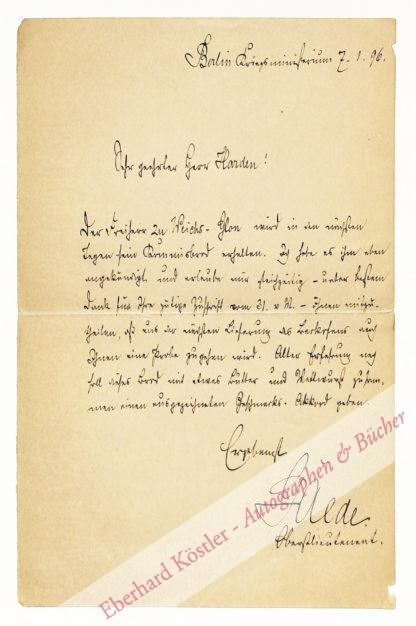 Berlin Kriegsministerium 7.1.96.
Sehr geehrter Herr Harden!
Der Freiherr zu Weichs-Glon wird in den nächsten
Tagen sein Kommisbrod erhalten. Ich habe es ihm eben
angekündigt und erlaube mir gleichzeitig – unter bestem
Dank für Ihre gütige Zuschrift vom 31. v. M. – Ihnen mitzu-
theilen, daß aus der nächsten Lieferung des Backofens auch
Ihnen eine Probe zugehen wird. Alter Erfahrung nach
soll dieses Brod mit etwas Butter und Mettwurst zusam-
men einen ausgezeichneten Geschmacks-Akkord geben.
Ergebenst
Oberstlieutenant.
Eberhard Köstler - Autographen & Bücher